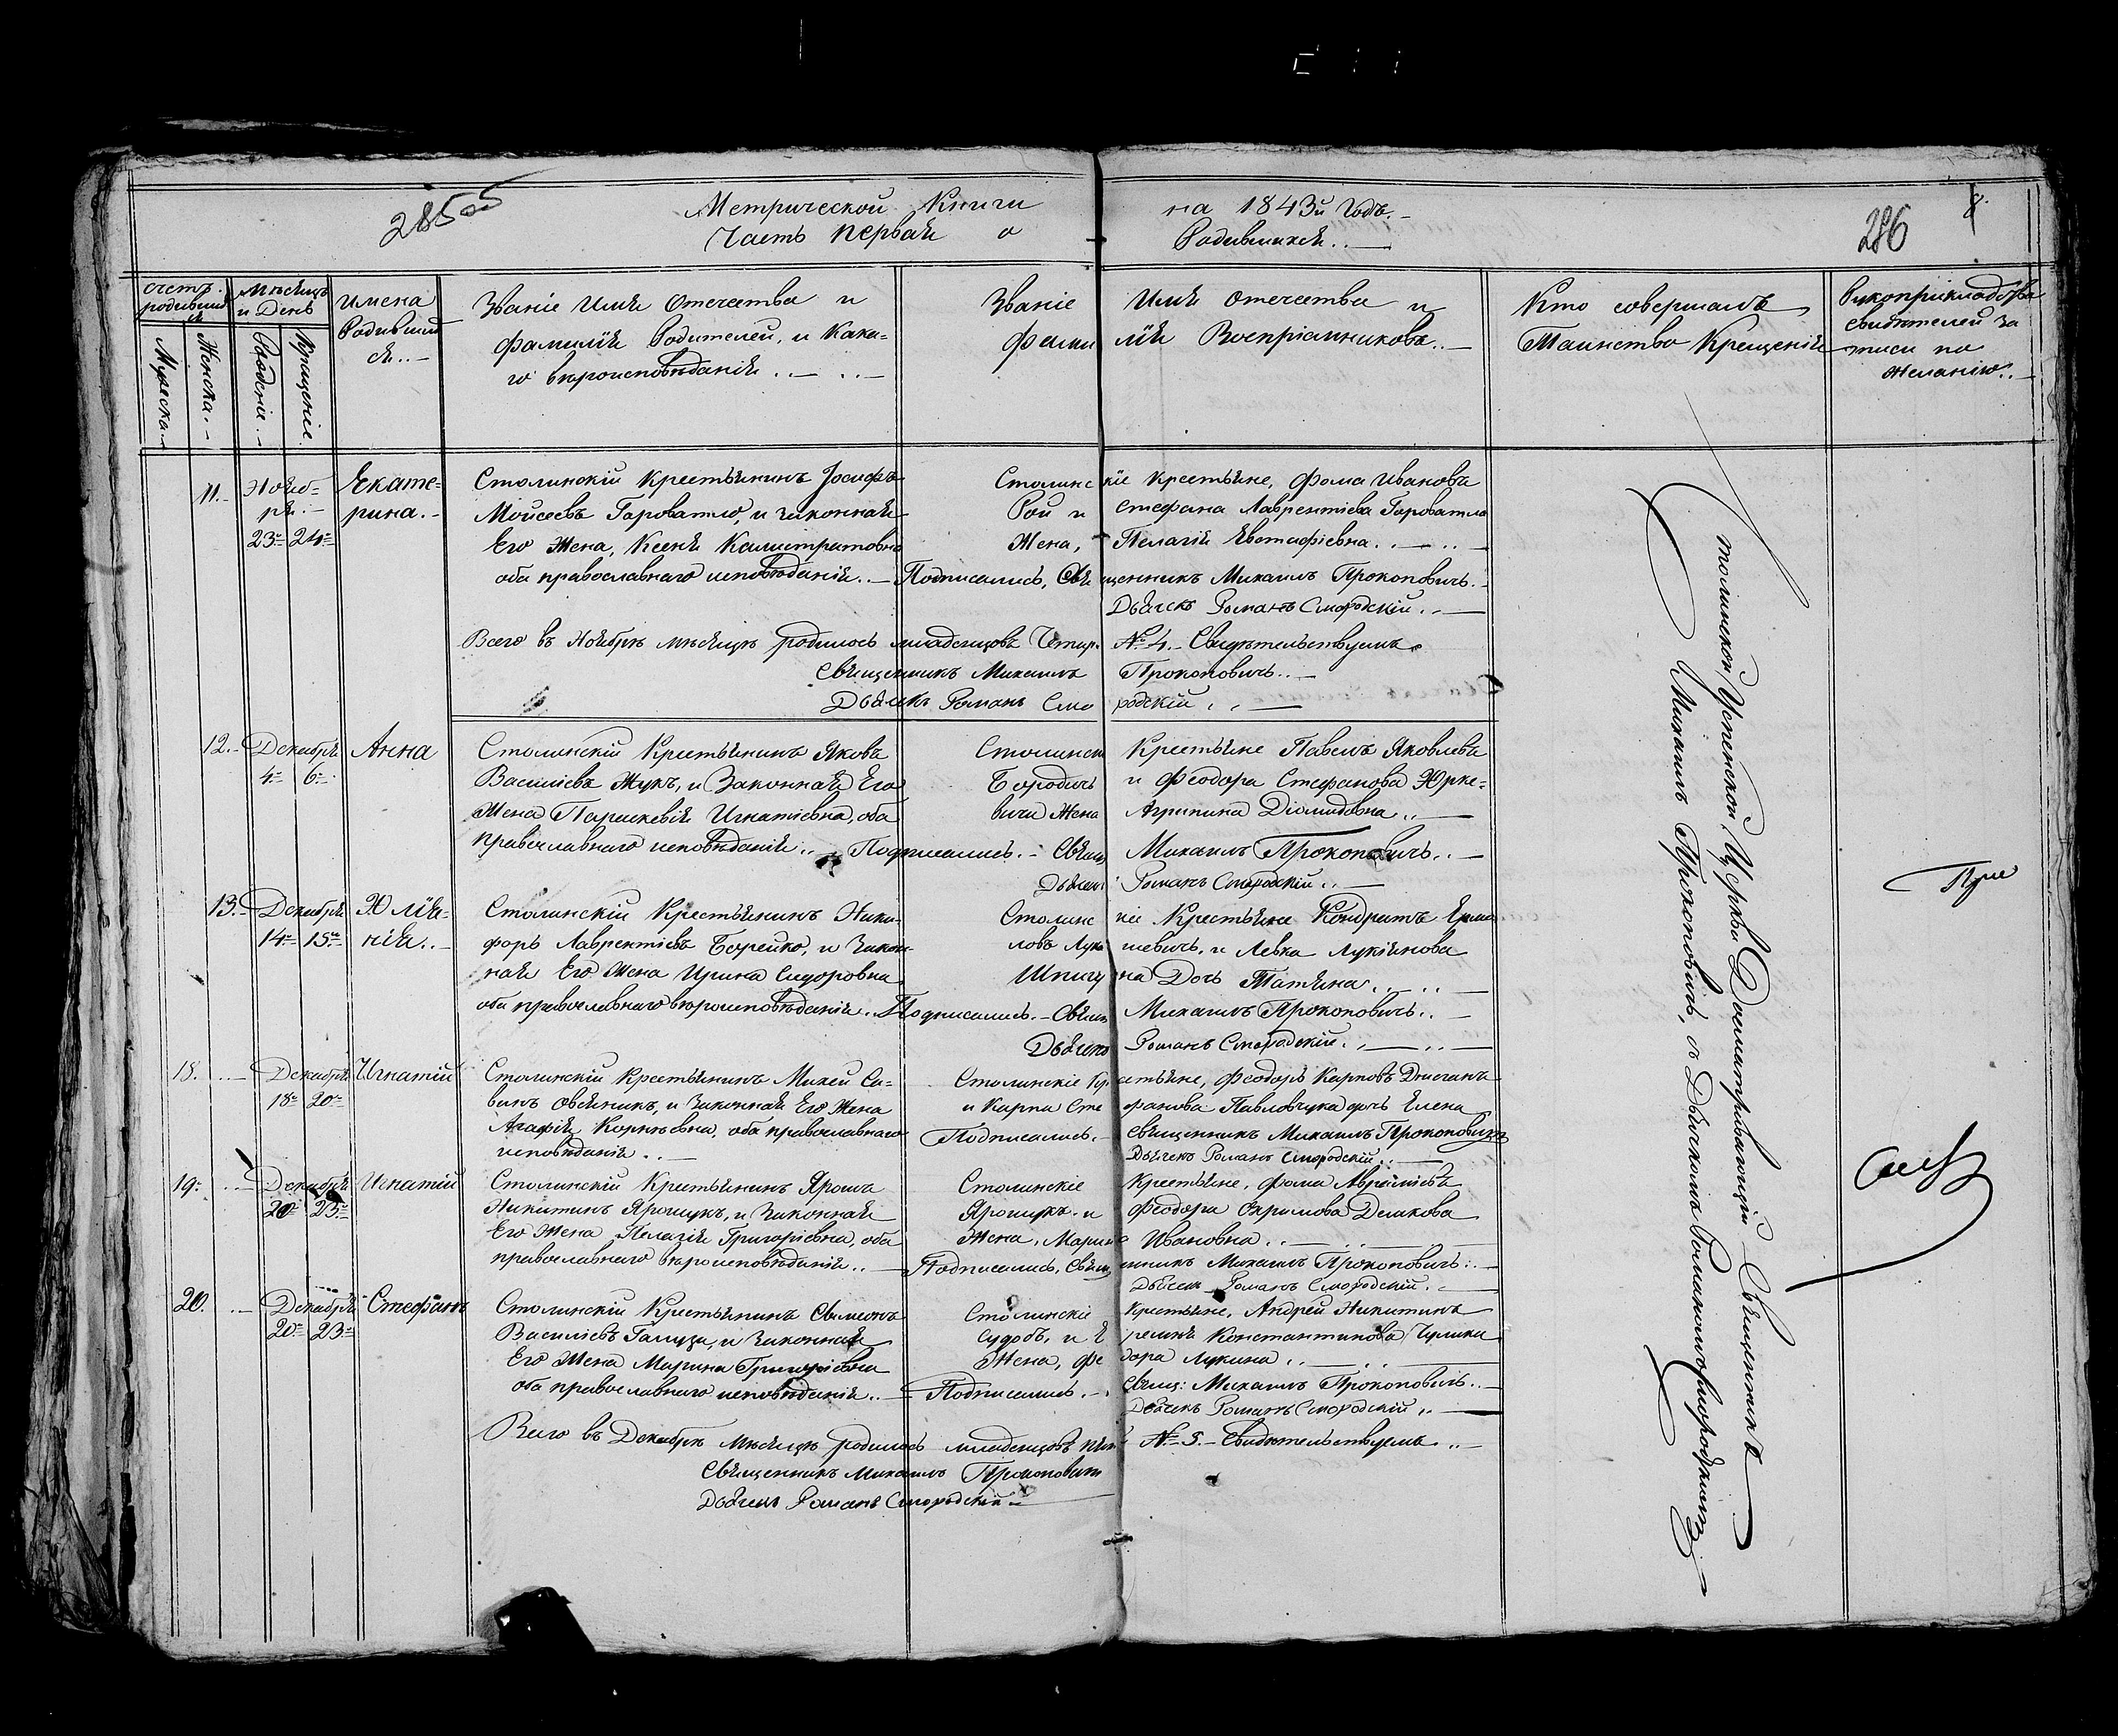 285
Метрической Книги на 1843й Годъ.
Часть Первая о Родившихся.
286
8
Счетъ родившихся
Мужеска.
Женска.
Мѣсяцъ и День
Рожденіе.
Крещеніе
Имена Родившихся.
Званіе Имя Отечества и
фамилія Родителей, и Како-
го вѣроисповѣданія
Званіе Имя Отечества и
фамилія Воспріемниковъ.
Кто совершалъ
Таинство Крещенія
Рукоприкладства
свидѣтелей за
писи по
желанію.
11. Ноябрь 23 24 Екате-
рина.
Столинскій Крестьянинъ Іосифъ
Моисеевъ Гороватко, и законная
Его Жена, Ксенія Калистратовна
оба православнаго исповѣданія.
Столинскіе крестьяне, Фома Иванова
Рой и Стефана Лаврентіева Гороватка
Жена, Пелагія Евстафіевна.
Подписались, Священникъ Михаилъ Прокоповичь.
Дьячекъ Романъ Смородскій.
Всего въ Ноябрѣ мѣсяцѣ родилось младенцовъ Четыр. № 4. Свидѣтельствуемъ
Священникъ Михаилъ Прокоповичь.
Дьячекъ Романъ Смородскій.
12. Декабрь 4 6 Анна
Столинскій Крестьянинъ Яковъ
Василіевъ Жукъ, и Законная Его
Жена Параскевія Игнатіевна, оба
православнаго исповѣданія.
Столинск Крестьяне Павелъ Яковлевъ
Бородичь и Феодора Стефанова Юрке-
вича Жена Агрипина Діомидовна
Подписались. Свящ Михаилъ Прокоповичь.
Дьячек Романъ Смородскій.
13. Декабрь 14 15 Юлія-
нія.
Столинскій Крестьянинъ Ники-
форъ Лаврентіевъ Борейко, и Закон-
ная Его Жена Ирина Сидоровна
оба православнаго вѣроисповѣданія.
Столинскіе Крестьяне Кондратъ Ерми
ловъ Лукашевичь, и Левка Лукіянова
Шпигуна Дочь Татіяна.
Подписались. Свящ Михаилъ Прокоповичь.
Дьячекъ Романъ Смородскій.
18. Декабрь 18 20 Игнатій
Столинскій Крестьянинъ Михей Са-
винъ Овсяникъ, и Законная Его Жена
Агафія Корнѣевна, оба православнаго
исповѣданія.
Столинскіе Крестьяне, Феодоръ Карповъ
и Карпа Стефанова Павловчука дочь Елена
Подписались. Священникъ Михаилъ Прокоповичь
Дьячекъ Романъ Смородскій.
19. Декабрь 20 23 Игнатій
Столинскій Крестьянинъ Ярошъ
Никитинъ Ярошукъ, и Законная
Его Жена Пелагія Григоріевна, оба
православнаго вѣроисповѣданія.
Столинскіе Крестьяне, Фома
Ярошукъ и Феодора
Жена, Марина Ивановна.
Подписались, Священникъ Михаилъ Прокоповичь.
Дьячекъ Романъ Смородскій.
20. Декабрь 20 23 Стефанъ
Столинскій Крестьянинъ Свимеонъ
Василіевъ Галуза, и Законная
Его Жена Марина Григоріевна
оба православнаго исповѣданія.
Столинскіе Крестьяне, Андрей Никитинъ
Судобъ, и Константинова Чулика
Жена, Федора Лукина.
Подписались. Свящ: Михаилъ Прокоповичь.
Дьячекъ Романъ Смородскій.
Всего въ Декабрѣ мѣсяцѣ родилось младенцовъ пять № 5. Свидѣтельствуемъ
Священникъ Михаилъ Прокоповичь
Дьячекъ Романъ Смородскій
Столинской Успенской Церкви Досматривающій Священникъ
Михаилъ Прокоповичь, съ Дьячкомъ Романомъ Смородскимъ